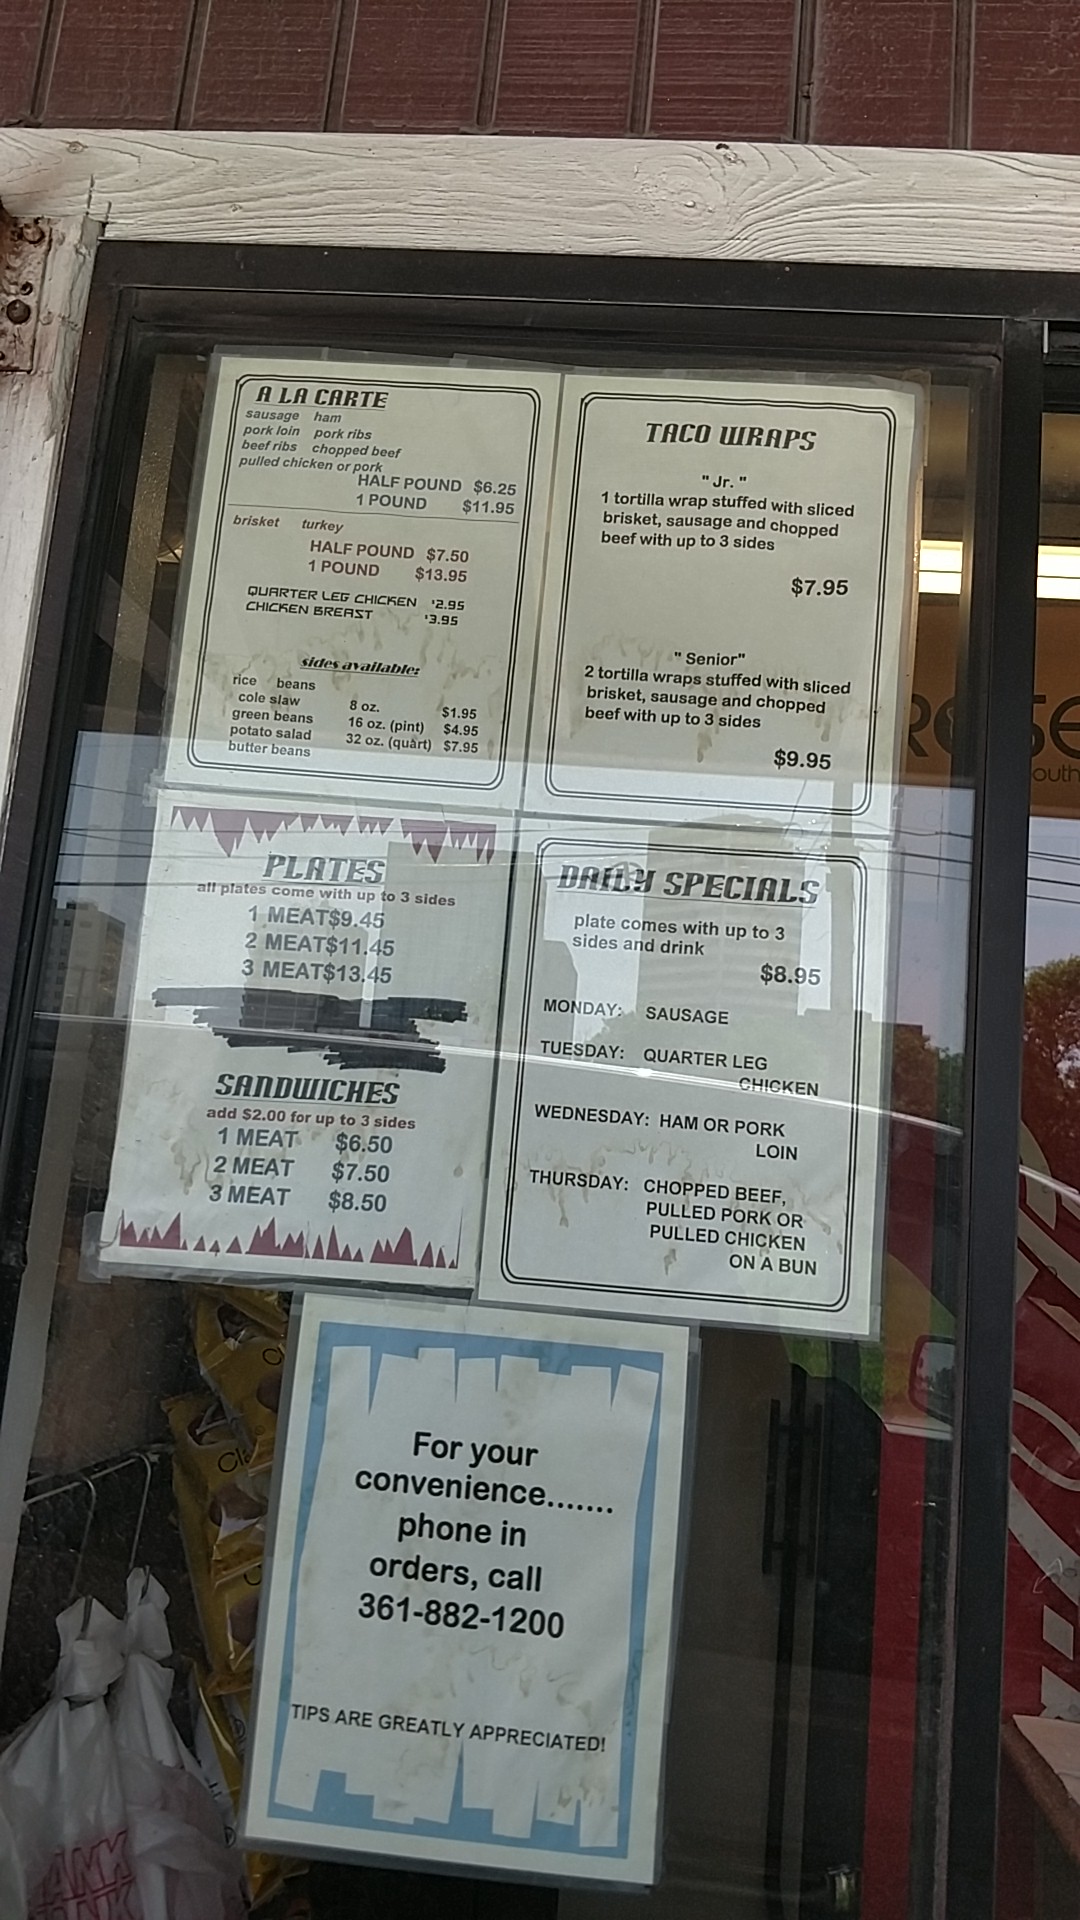 A LA CARTE
sausage ham
pork loin pork ribs
beef ribs chopped beef
pulled chicken or pork
HALF POUND $6.25
1 POUND $11.95
brisket turkey
HALF POUND $7.50
1 POUND $13.95
QUARTER LEG CHICKEN $2.95
CHICKEN BREAST $3.95
sides available:
rice beans
cole slaw 8 oz. $1.95
green beans 16 oz. (pint) $4.95
potato salad 32 oz. (quart) $7.95
butter beans
TACO WRAPS
" Jr. "
1 tortilla wrap stuffed with sliced
brisket, sausage and chopped
beef with up to 3 sides
$7.95
" Senior"
2 tortilla wraps stuffed with sliced
brisket, sausage and chopped
beef with up to 3 sides
$9.95
PLATES
all plates come with up to 3 sides
1 MEAT$9.45
2 MEAT$11.45
3 MEAT$13.45
SANDWICHES
add $2.00 for up to 3 sides
1 MEAT $6.50
2 MEAT $7.50
3 MEAT $8.50
DAILY SPECIALS
plate comes with up to 3
sides and drink
$8.95
MONDAY: SAUSAGE
TUESDAY: QUARTER LEG
CHICKEN
WEDNESDAY: HAM OR PORK
LOIN
THURSDAY: CHOPPED BEEF,
PULLED PORK OR
PULLED CHICKEN
ON A BUN
For your
convenience.......
phone in
orders, call
361-882-1200
TIPS ARE GREATLY APPRECIATED!